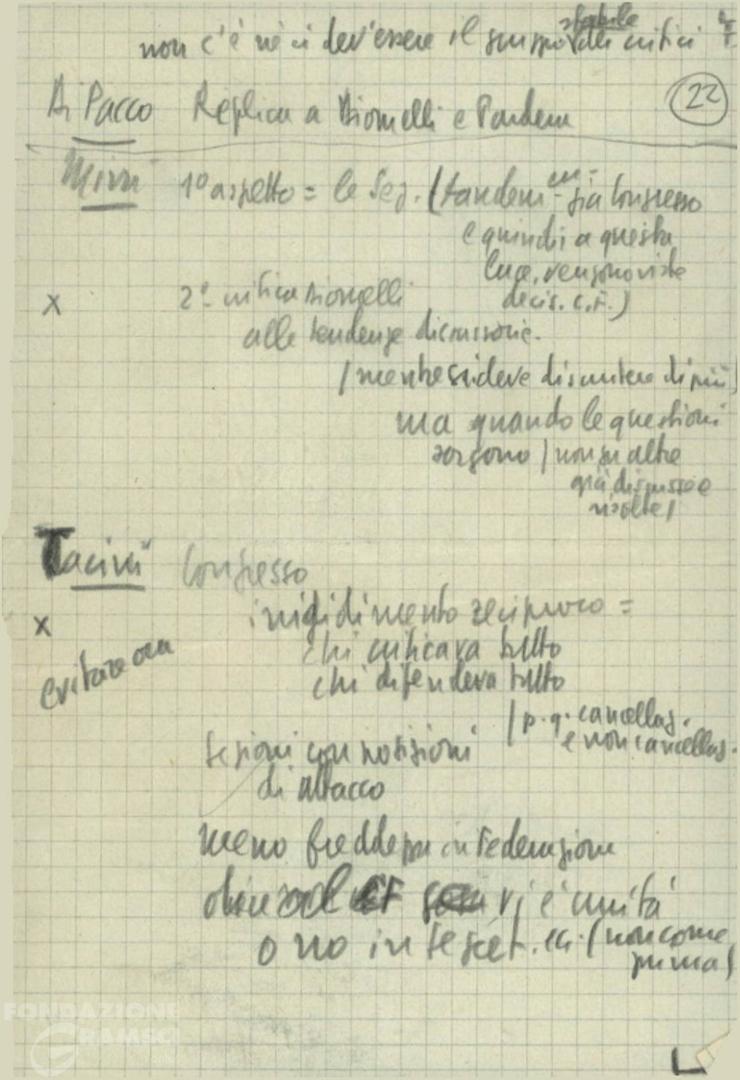 stabile
non c'è nè ci dev'essere il gruppo dei critici
Di Pacco Replica a Bionelli e 22
Mirri 1º aspetto = le Sez. (tandem in già Congresso
e quindi a questa
luce, vengono viste
decis. C.F.)
x 2º critica Bionelli
alle tendenze discussorie.
(mentre si deve discutere di più)
ma quando le questioni
sorgono (non su altre
già discusse e
risolte)
Tacini Congresso
x irrigidimento reciproco =
evitare ora chi criticava tutto
chi difendeva tutto
(p. q. cancellaz.
e non cancellaz.
sezioni con posizioni
di attacco
meno freddezza in Federazione
dire nel CF vi è unità
o no in Segret. ecc. (non come
prima)
FONDAZIONE
GRAMSCI